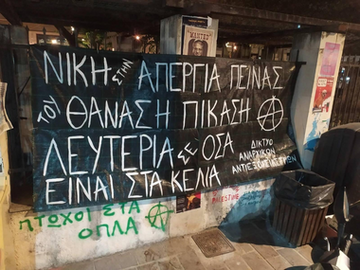 ΝΙΚΗ ΣΤΗΝ ΑΠΕΡΓΙΑ ΠΕΙΝΑΣ
ΤΟΥ ΘΑΝΑΣΗ ΠΙΚΑΣΗ
ΛΕΥΤΕΡΙΑ ΣΕ ΟΣΑ
ΕΙΝΑΙ ΣΤΑ ΚΕΛΙΑ
ΔΙΚΤΥΟ
ΑΝΑΡΧΙΚΩΝ
ΠΤΩΧΟΙ ΣΤΑ
ΟΠΛΑ
PALESTINE